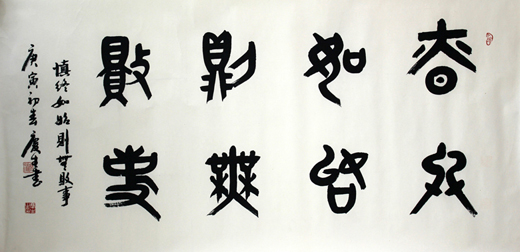 慎終
如始
則無
敗事
慎终如始則無敗事
庚寅初春